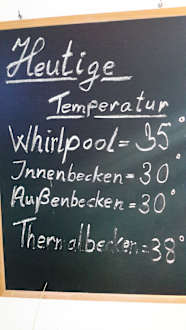 Heutige
Temperatur
Whirlpool = 35°
Innenbecken = 30°
Außenbecken = 30°
Thermalbecken = 38°